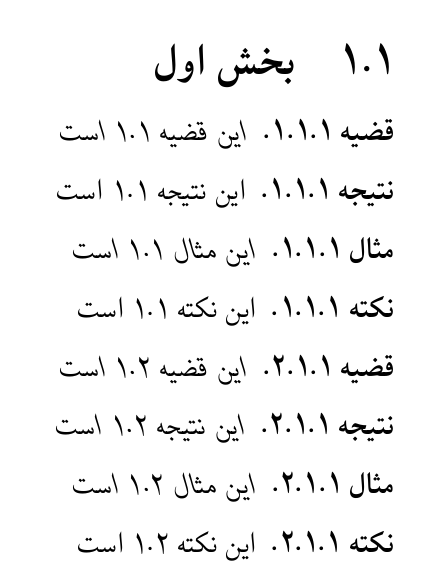 ۱.۱ بخش اول
قضیه ۱.۱.۱. این قضیه ۱.۱ است
نتیجه ۱.۱.۱. این نتیجه ۱.۱ است
مثال ۱.۱.۱. این مثال ۱.۱ است
نکته ۱.۱.۱. این نکته ۱.۱ است
قضیه ۲.۱.۱. این قضیه ۱.۲ است
نتیجه ۲.۱.۱. این نتیجه ۱.۲ است
مثال ۲.۱.۱. این مثال ۱.۲ است
نکته ۲.۱.۱. این نکته ۱.۲ است